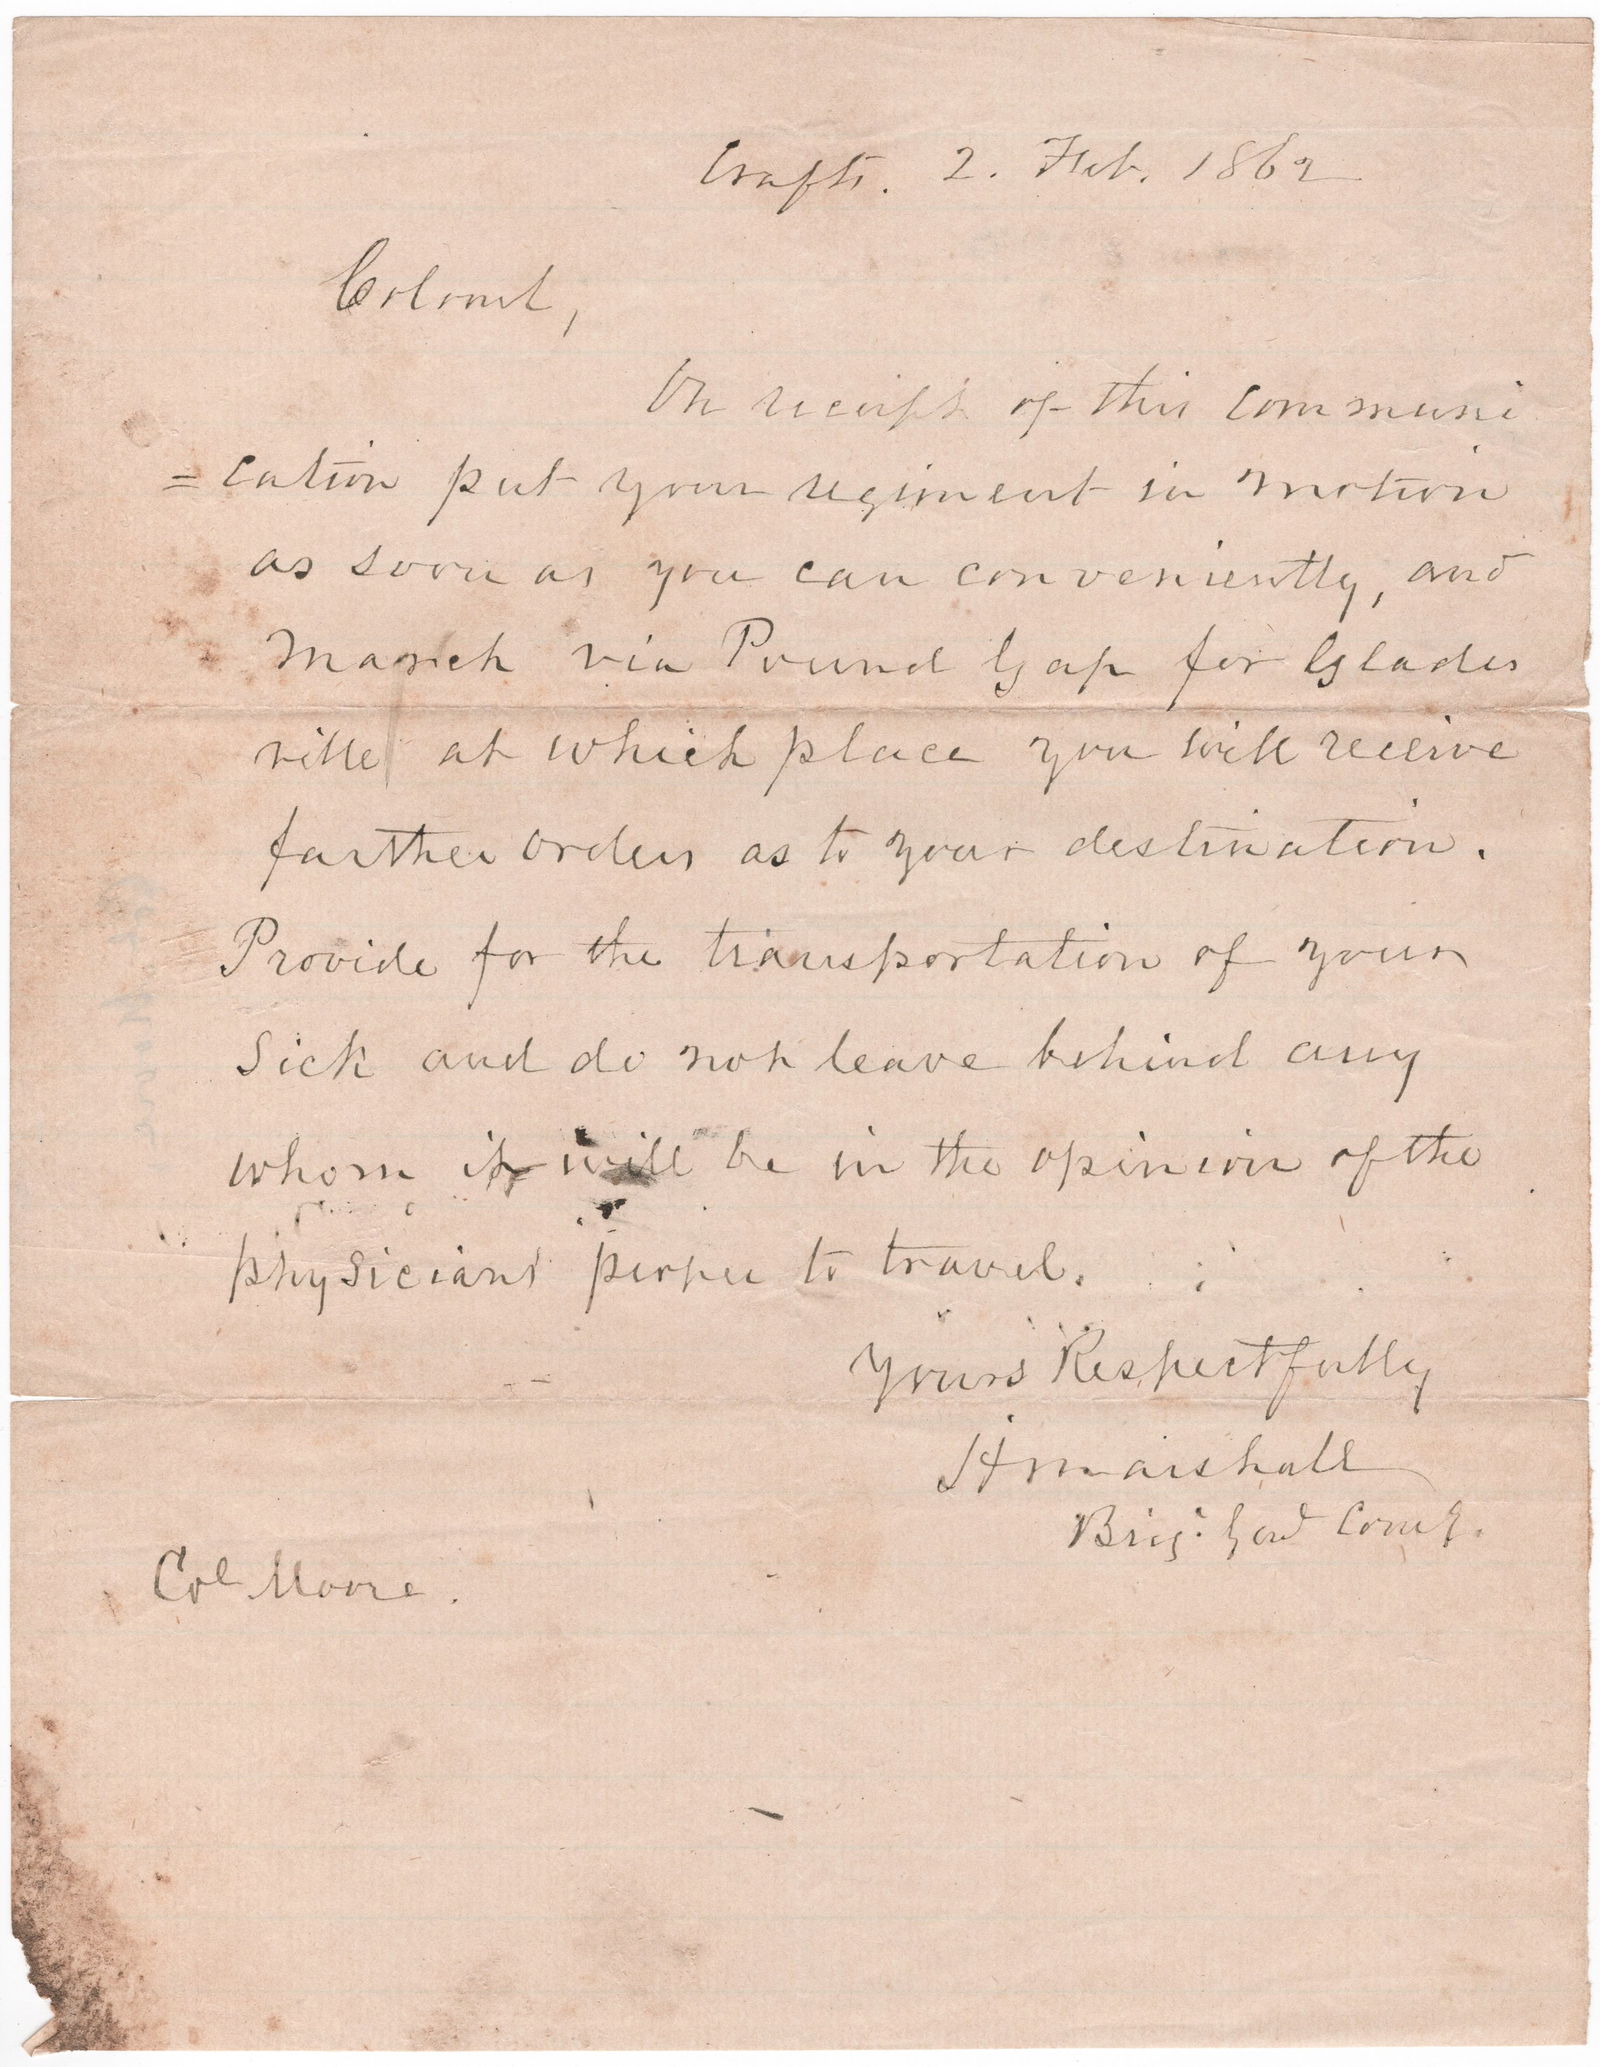 Crafts. 2. Feb. 1862
Colonel,
On receipt of this communi
=cation put your regiment in motion
as soon as you can conveniently, and
march via Pound Gap for Glades
ville at which place you will receive
further orders as to your destination.
Provide for the transportation of your
Sick and do not leave behind any
whom it will be in the opinion of the
physicians proper to travel.
Yours Respectfully
H Marshall
Brig. Genl Comg.
Col Moore.